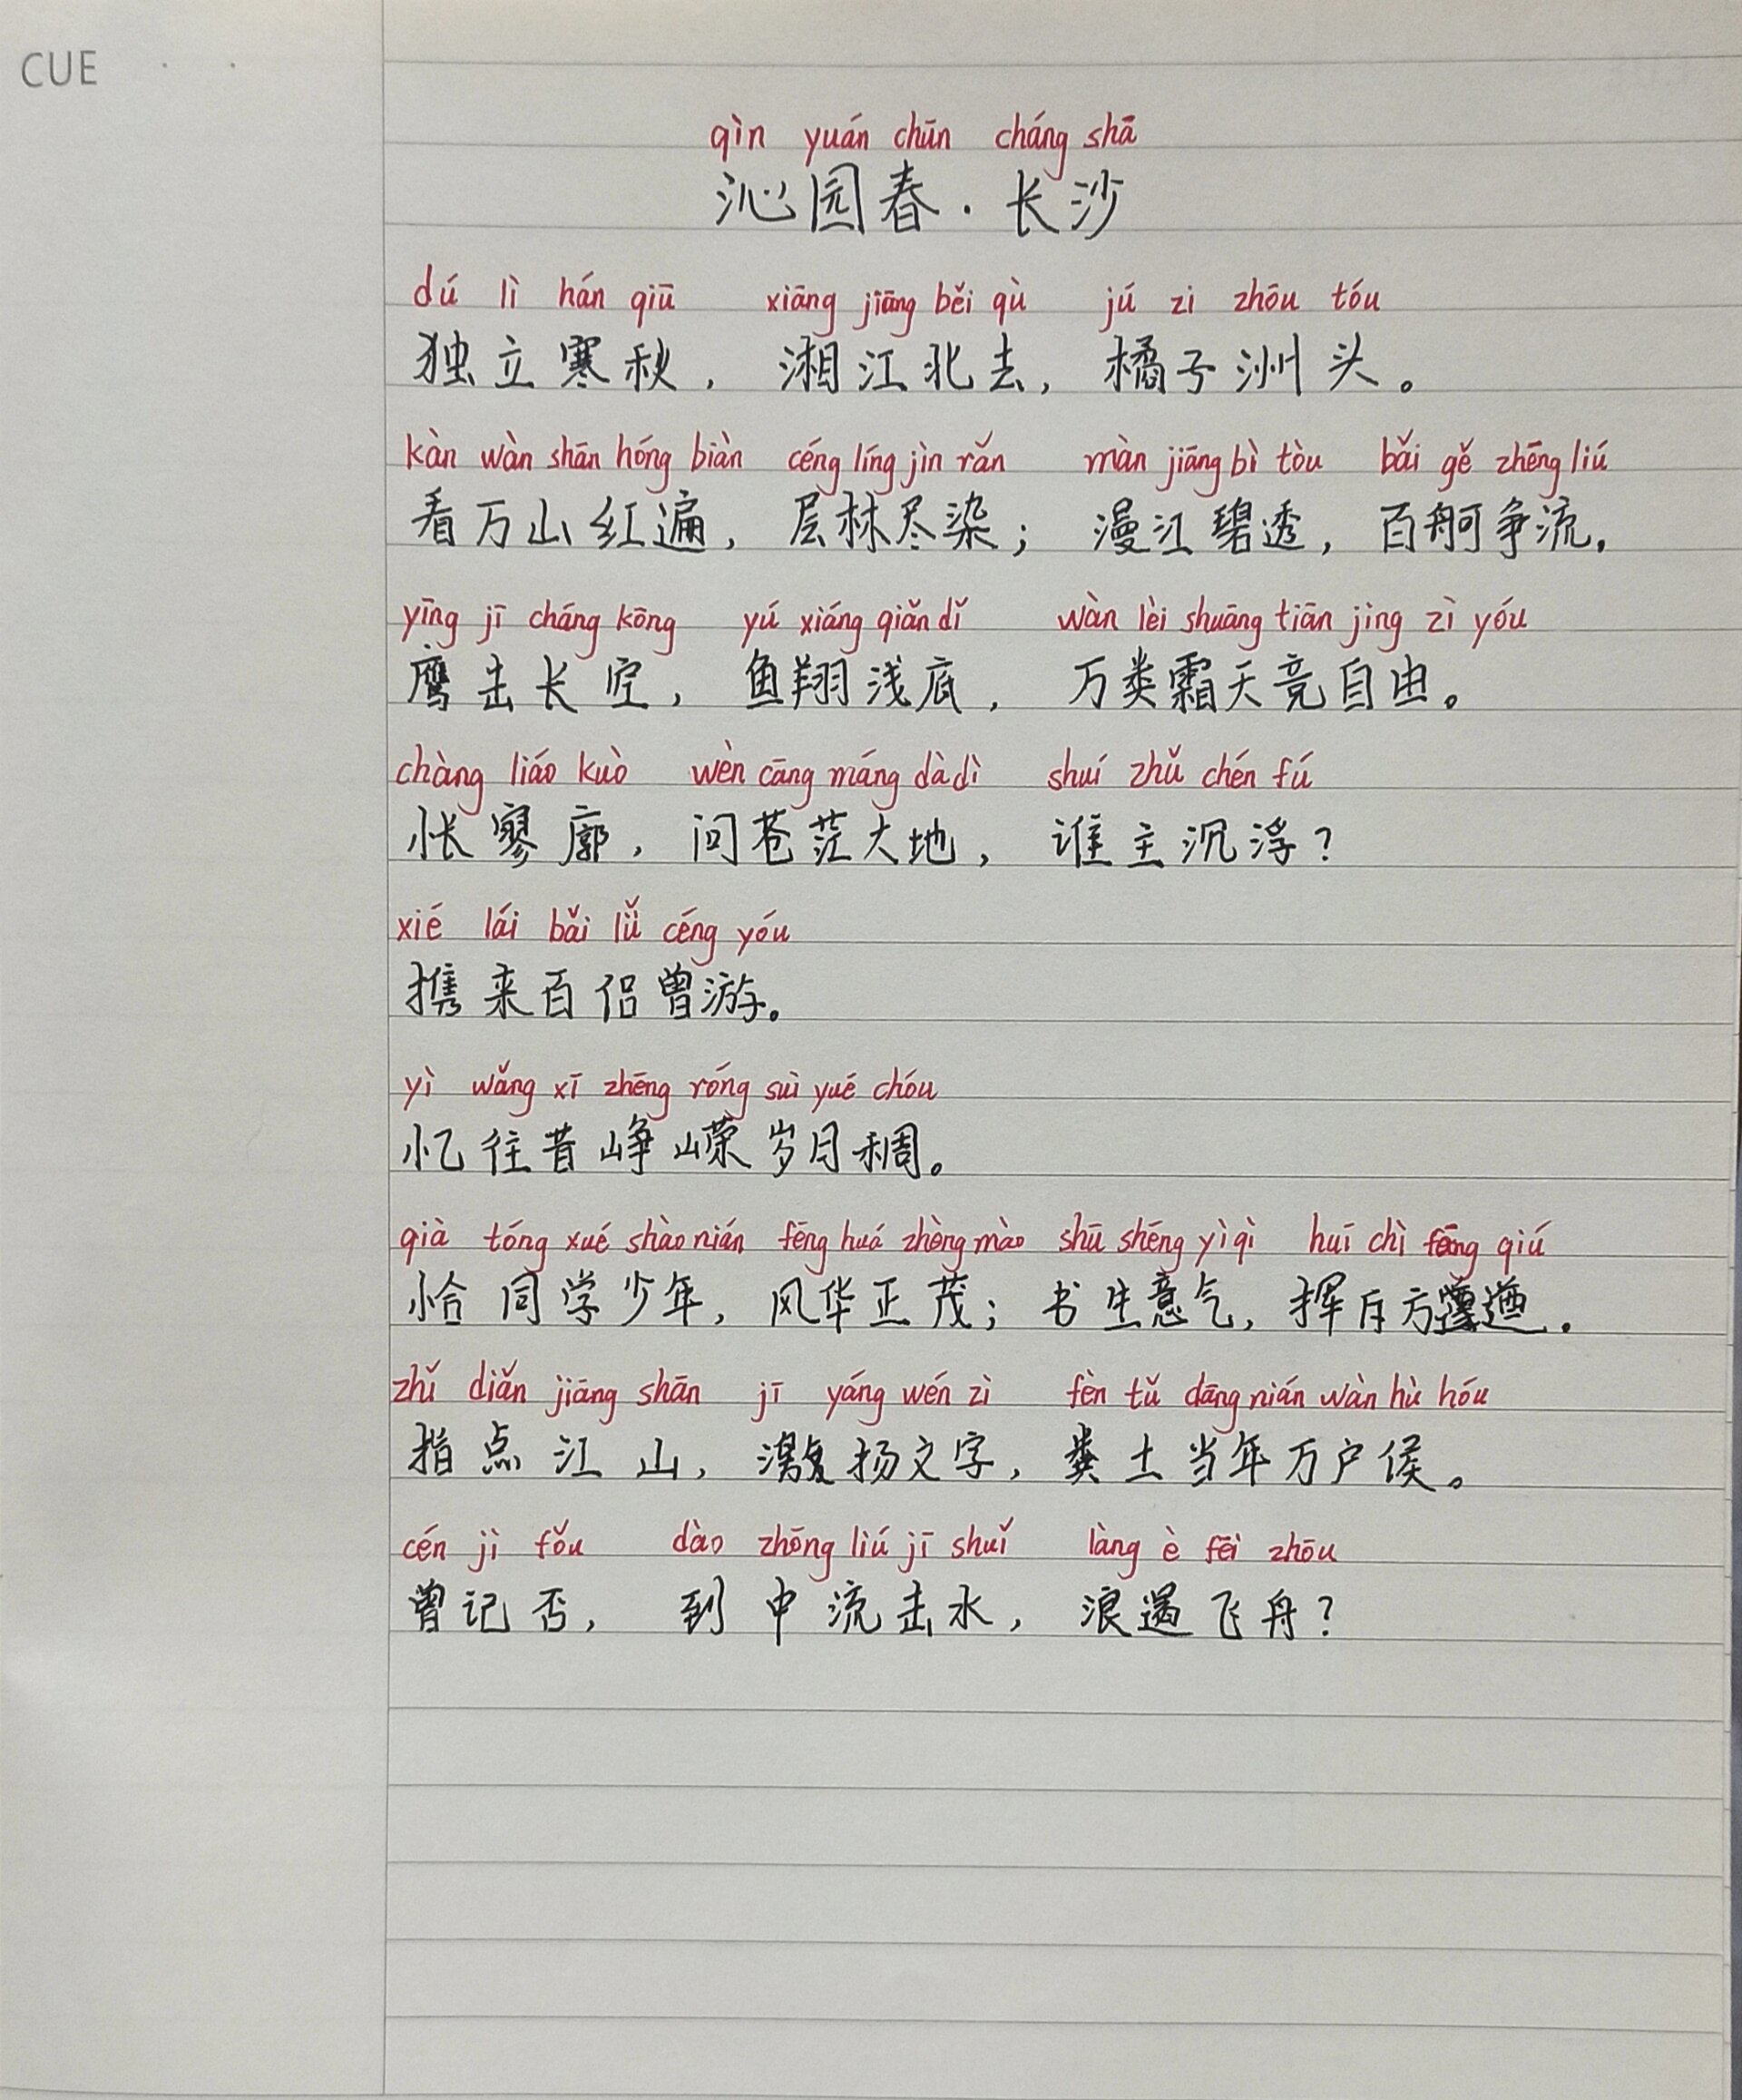 CUE
qìn yuán chūn cháng shā
沁园春·长沙
dú lì hán qiū xiāng jiāng běi qù jú zi zhōu tóu
独立寒秋，湘江北去，橘子洲头。
kàn wàn shān hóng biàn céng líng jìn rǎn màn jiāng bì tòu bǎi gě zhēng liú
看万山红遍，层林尽染；漫江碧透，百舸争流。
yīng jī cháng kōng yú xiáng qiǎn dǐ wàn lèi shuāng tiān jìng zì yóu
鹰击长空，鱼翔浅底，万类霜天竞自由。
chàng liáo kuò wèn cāng máng dà dì shuí zhǔ chén fú
怅寥廓，问苍茫大地，谁主沉浮？
xié lái bǎi lǚ céng yóu
携来百侣曾游。
yì wǎng xī zhēng róng suì yué chóu
忆往昔峥嵘岁月稠。
qià tóng xué shào nián fēng huá zhèng mào shū shēng yì qì huī chì fāng qiú
恰同学少年，风华正茂；书生意气，挥斥方遒。
zhǐ diǎn jiāng shān jī yáng wén zì fèn tǔ dāng nián wàn hù hóu
指点江山，激扬文字，粪土当年万户侯。
cén jì fǒu dào zhōng liú jī shuǐ làng è fēi zhōu
曾记否，到中流击水，浪遏飞舟？